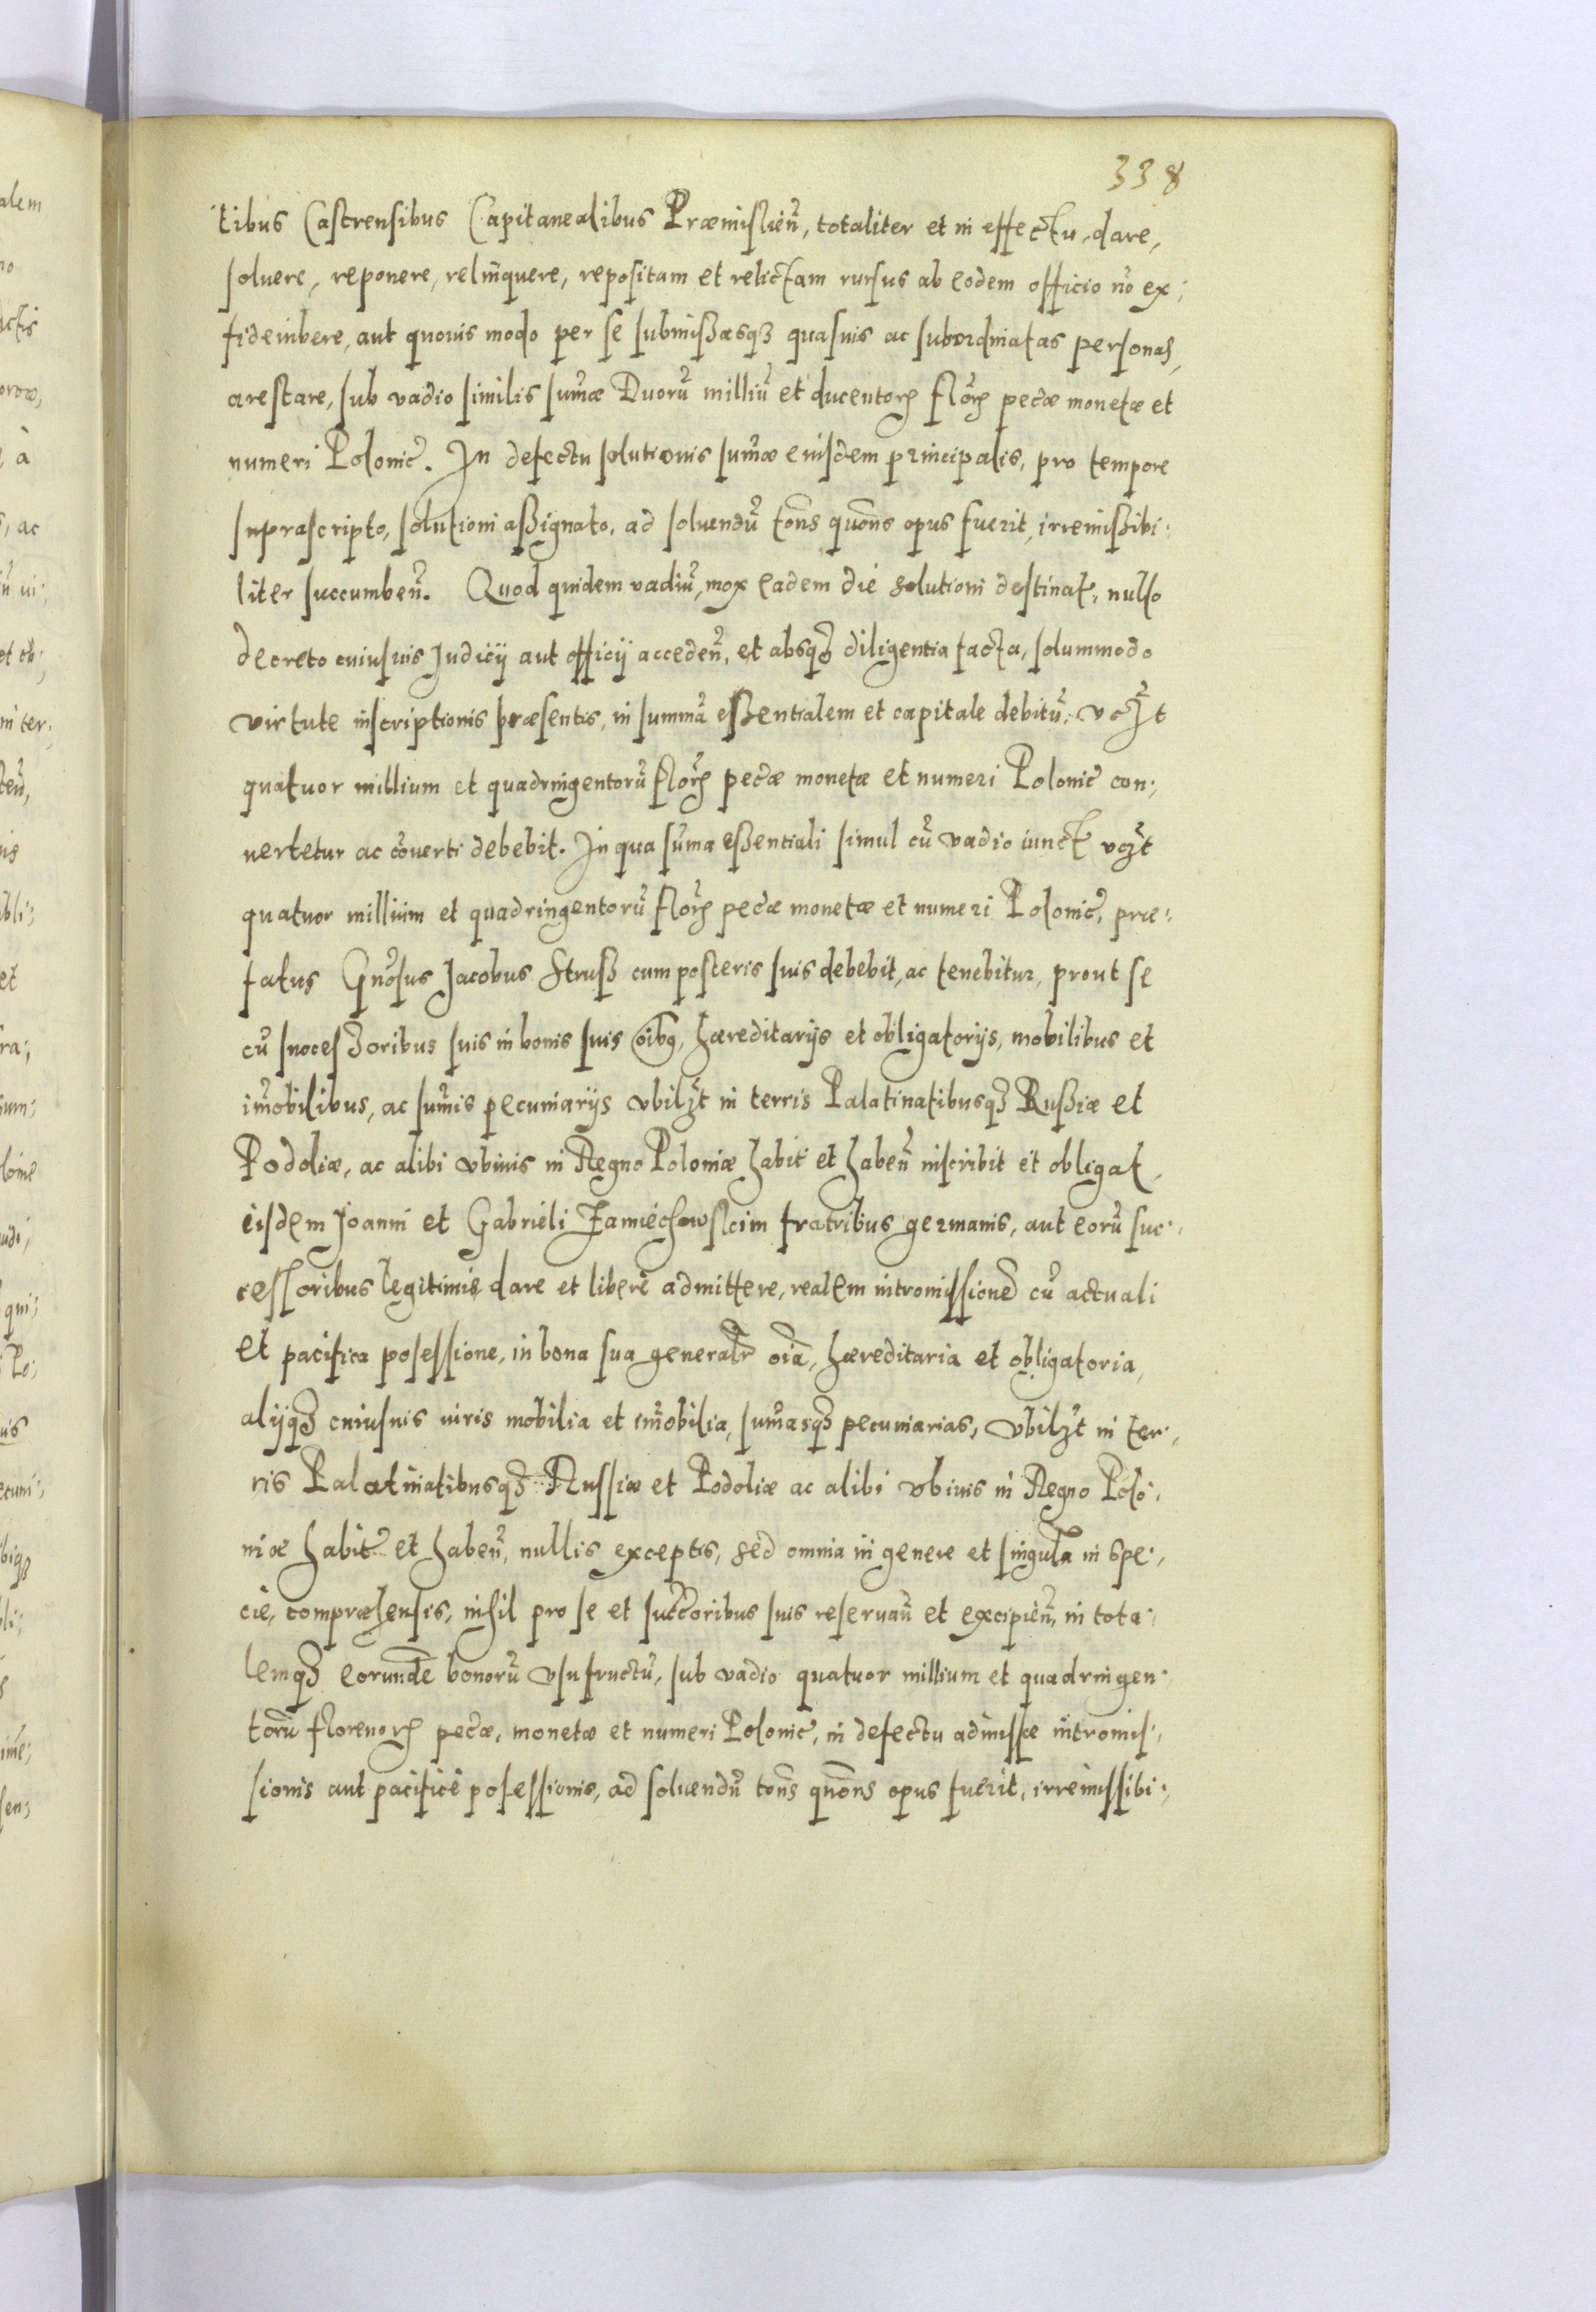 338
tibus Castrensibus Capitanealibus Præmislien̄, totaliter et in effectu, dare,
soluere, reponere, relinquere, repositam et relictam rursus ab eodem officio nō ex;
fideiubere, aut quouis modo per se submissasqꝫ quasuis ac subordinatas personas,
arestare, sub vadio similis sum̄æ Duorū milliū et ducentorꝝ flōrꝝ pec̄æ monetæ et
numeri Polonic̄. In defectu solutionis sum̄æ eiusdem principalis, pro tempore
suprascripto, solutioni assignato, ad soluendū tōns quōns opus fuerit, irremissibi;
liter succumben̄. Quod quidem vadiū, mox eadem die solutioni destinat, nullo
decreto cuiusuis Judicij aut officij acceden̄, et absqꝫ diligentia facta, solummodo
virtute inscriptionis præsentis, in summā essentialem et capitale debitū, vcꝫt
quatuor millium et quadringentorū flōrꝝ pec̄æ monetæ et numeri Polonic̄ con;
uertetur ac cōuerti debebit. In qua sum̄a essentiali simul cū vadio iunct vcꝫt
quatuor millium et quadringentorū flōrꝝ pec̄æ monetæ et numeri Polonic̄, præ;
fatus Gn̄osus Jacobus Struß cum posteris suis debebit, ac tenebitur, prout se
cū successoribus suis in bonis suis oībꝯ, hæreditarijs et obligatorijs, mobilibus et
im̄obilibus, ac sum̄is pecuniarijs vbilꝫt in terris Palatinatibusqꝫ Russiæ et
Podoliæ, ac alibi vbiuis in Regno Poloniæ habit et haben̄ inscribit et obligat,
eisdem Joanni et Gabrieli Zamiechowscim fratribus germanis, aut eorū suc;
cessoribus legitimis dare et liberè admittere, realem intromissionē cū actuali
et pacifica posessione, in bona sua generalr̄ oīa, hæreditaria et obligatoria,
alijqꝫ cuiusuis iuris mobilia et im̄obilia, sum̄asqꝫ pecuniarias, vbilꝫt in ter;
ris Palatinatibusqꝫ Russiæ et Podoliæ ac alibi vbiuis in Regno Polo;
niæ habit̄ et haben̄, nullis exceptis, sed omnia in genere et singula in spe;
cie, compræhensis, nihil pro se et succ̄oribus suis reseruan̄ et excipien̄, in tota;
lemqꝫ eorundē bonorū vsufructū, sub vadio quatuor millium et quadringen;
torū florenorꝝ pec̄æ, monetæ et numeri Polonic̄, in defectu admissæ intromis;
sionis aut pacificè posessionis, ad soluendū tōns quōns opus fuerit, irremissibi;